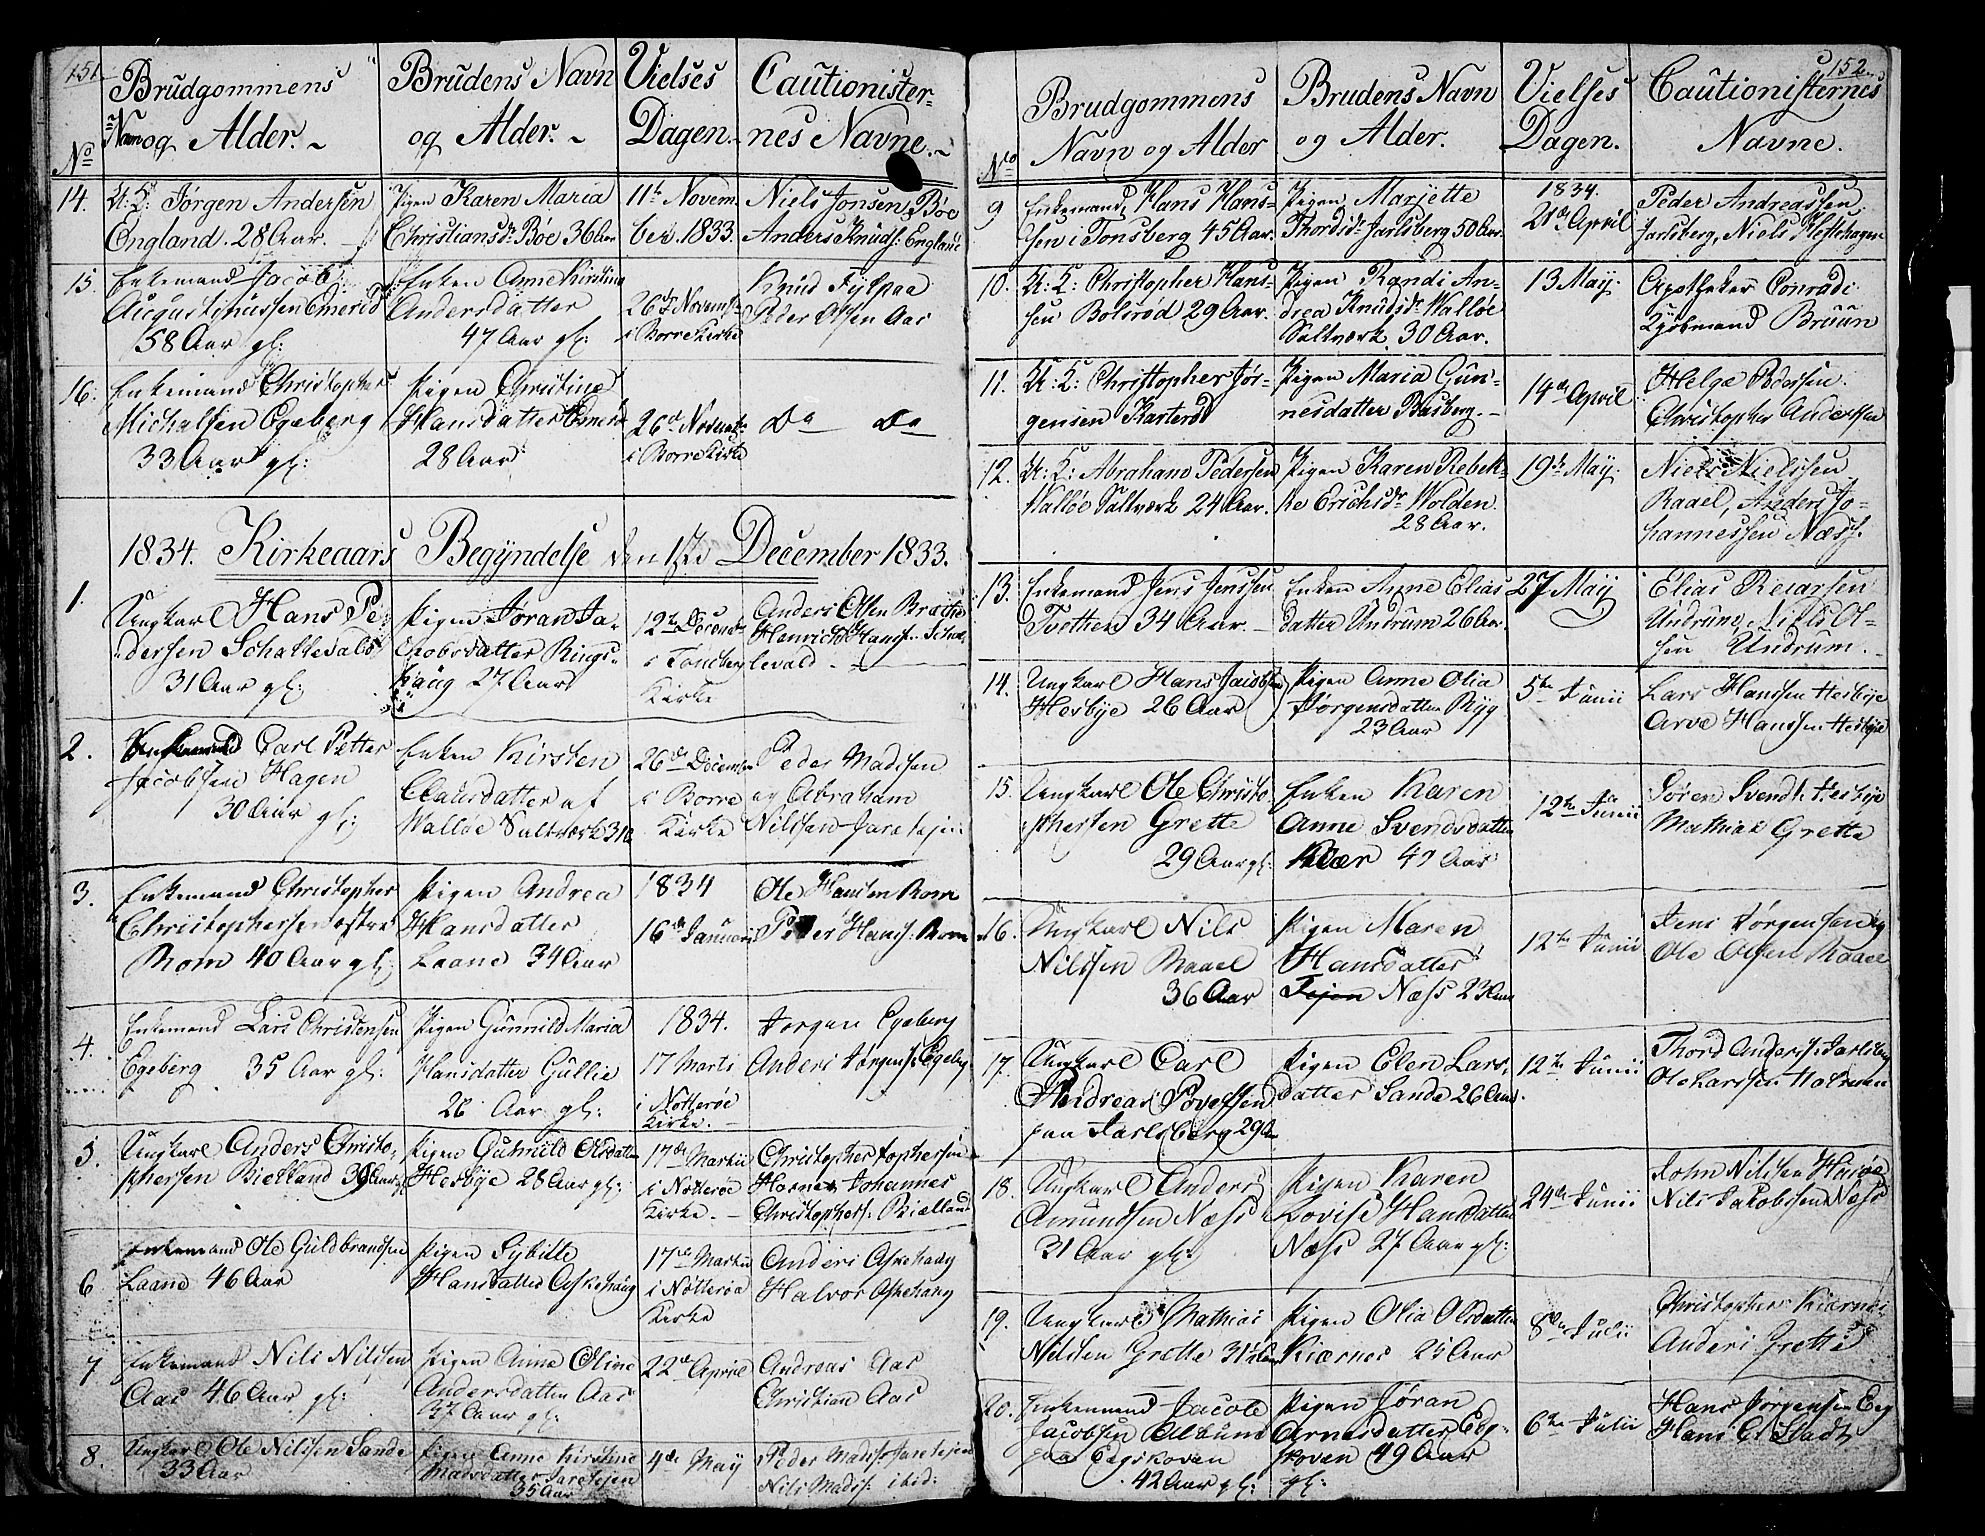 151.
Brudgommens
Navn og Alder. ~
Brudens Navn
og Alder. ~
Vielses
Dagen. ~
Cautionister-
nes Navne. ~
No
14. U: K: Jørgen Andersen
England. 28 Aar.
Pigen Karen Maria
Christiansdr. Böe 36 Aar
11te Novem-
ber. 1833.
Niels Jonsen Böe
Anders Knuds: England
15. Enkemand Jacob
Augustinussen
58 Aar gl:
Enken Anne Kirstine
Andersdatter
47 Aar gl:
26de Novemb:
i Borre Kirke
Knud
Peder Olsen Aas
16. Enkemand Christopher
Michalsen Egeberg
33 Aar gl:
Pigen Christine
Hansdatter
28 Aar
26de Novemb:
i Borre Kirke
do do
1834. Kirkeaars Begyndelse den 1ste December 1833.
1. Ungkarl Hans Pe-
dersen
31 Aar gl:
Pigen Joran Ja-
cobsdatter Rings-
haug 27 Aar
12te Decemb
i Tönsberg
Kirke
Anders Olsen
Henrich Hanss:
levald
2. Carl Petter
Jacobsen Hagen
30 Aar gl:
Enken Kirsten
Clausdatter af
Walløe Saltværk 31 a
26de December
i Borre
Kirke
Peder Madssen
og Abraham
Nilssen Jaretejen
3. Enkemand Christopher
Christophersen østre
Rom 40 Aar gl:
Pigen Andrea
Hansdatter
Laane 34 Aar
1834
16de Januari
Ole Hansen Rom
Peder Hanss: Rom
4. Enkemand Lars Christensen
Egeberg 35 Aar gl:
Pigen Gunnild Maria
Hansdatter Gullie
26 Aar gl:
1834.
17 Marti
i Nøtterøe
Kirke. -
Jørgen Egeberg
Anders Jørgens: Egeberg
5. Ungkarl Anders Christo-
phersen Bielland 39 Aar gl
Pigen Gunnild Olsdatter
Hesbye 28 Aar gl:
17de Martii
i Nøtterøe
Kirke. -
Christopher
Johannes
Christophers: Bielland
6 Enkemand Ole Guldbrandsen
Laane 46 Aar
Pigen Sybille
Hansdatter Askehaug
17de Martii
i Nøtterøe
Kirke
Anders Askehaug
Halvor Askehaug
7 Enkemand Nils Nilssen
Aas 46 Aar gl:
Pigen Anne Oline
Andersdatter Aas
37 Aar gl:
22de April
Andreas Aas
Christian Aas
8. Ungkarl Ole Nilssen Sande
33 Aar
Pigen Anne Kirstine
Madsdatter Jaretejen
35 Aar
4de May
Peder Madss: Jaretejen
Nils Madss: ibid:
152.
Brudgommens
Navn og Alder
Brudens Navn
og Alder.
Vielses
Dagen.
Cautionisternes
Navne.
No
9 Enkemand Hans Hans-
sen i Tonsberg 45 Aar.
Pigen Marjette
Thordsdr. Jarlsberg 50 Aar.
1834.
21de April
Peder Andreassen
Jarlsberg, Niels Hestehagen
10. U: K: Christopher Hans-
sen Bolsrød 29 Aar.
Pigen Randi An-
drea Knudsdr. Walløe
Saltværk. 30 Aar.
13 May.
Apotheker Conradi
Kjøbmand Bruun
11. U: K: Christopher Jør-
gensen
Pigen Maria Gun-
nesdatter Basberg. -
14de April
Helge Pedersen.
Christopher Anderssen
12. U: K: Abraham Pedersen
Walløe Saltværk 24 Aar.
Pigen Karen Rebek-
ke Erichsdr. Wolden
28 Aar.
19de May.
Niels Nielssen
Raael, Anders Jo-
hannessen Næss.
13. Enkemand Jens Jenssen
Tvetten 34 Aar. -
Enken Anne Elias
datter Undrum 26 Aar.
27 May
Elias Reiarsen
Undrum, Niels Ol-
sen Undrum. -
14. Ungkarl Hans Jacobsen
Hesbye 26 Aar
Pigen Anne Olia
Jørgensdatter Ryg
23 Aar
5te Junii
Lars Hanssen Hesbye
Arve Hanssen Hesbye
15. Ungkarl Ole Christo-
phersen Grette
29 Aar gl:
Enken Karen
Anne Svendsdatter
Kiær 49 Aar
12te Junii
Søren Svends: Hesbye
Mathias Grette
16. Ungkarl Nils
Nilssen Raael
36 Aar
Pigen Maren
Hansdatter
Næss 23 Aar
12te Junii
Jens Jørgensen og
Ole Olssen Raael
17. Ungkarl Carl
Andreas Povelsen
paa Jarlsberg 29 Aar
Pigen Elen Lars-
datter Sande 26 Aar.
12te Junii
Thord Anders: Jarlsberg
Ole Larssen
18. Ungkarl Anders
Amundsen Næss
31 Aar gl:
Pigen Karen
Lovise Hansdatter
Næss 27 Aar gl:
24de Junii
John Nilssen
Nils Jacobssen Næss
19. Ungkarl Mathias
Nilssen Grette 31 Aar
Pigen Olia Olsdatter
Kiærnes 25 Aar
8de Julii
Christopher Kiærnes
Anders Grette
20. Enkemand Jacob
Jacobsen
paa Eegskoven
42 Aar gl:
Pigen Jøran
Arnesdatter Eeg-
skoven 49 Aar
gl:
6te Julii
Hans Jørgensen Eeg
Hans